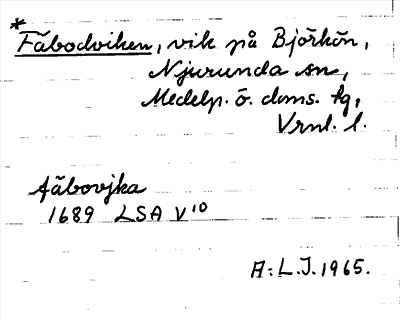 * Fäbodviken, vik på Björkön,
Njurunda sn,
Medelp. ö. doms. tg,
Vrnl. l.
Fäbovjka
1689 LSA V¹⁰
A: L.J. 1965.